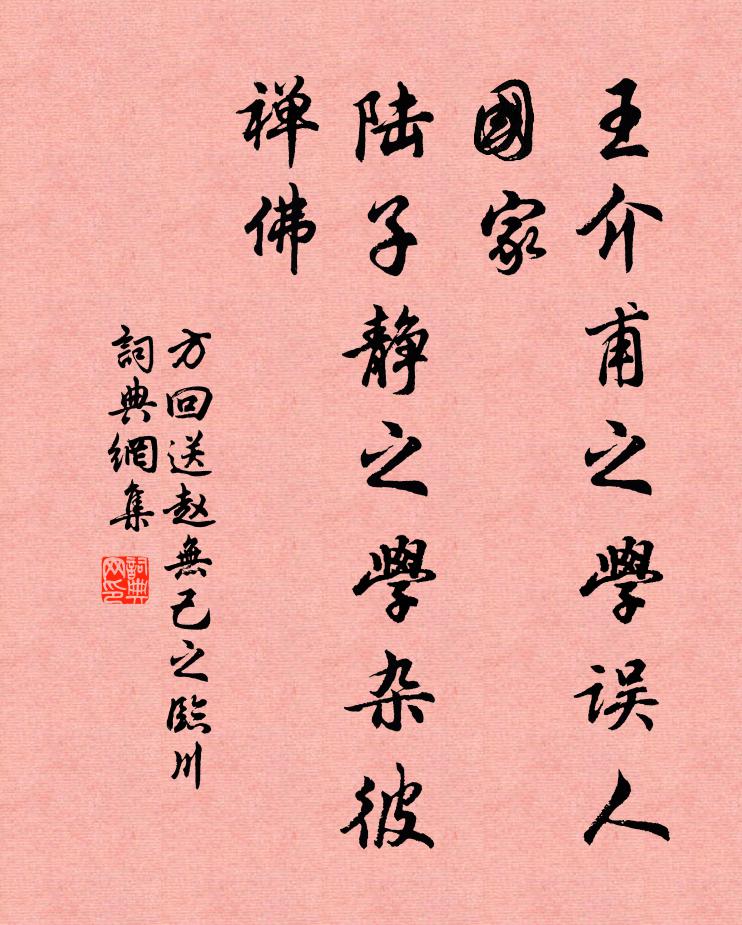 王介甫之學误人
國家
陆子静之學杂彼
禅佛
方回送赵無己之臨川
詞典網集
詞典
网印